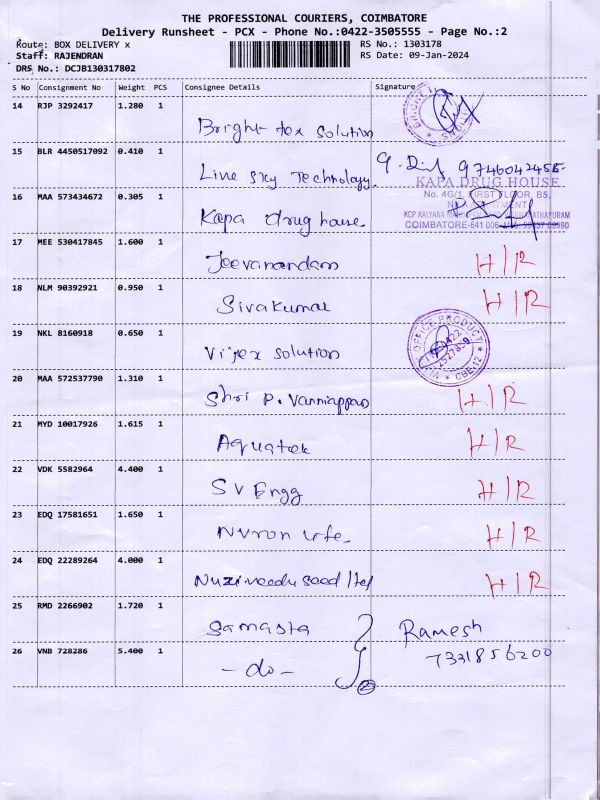 THE PROFESSIONAL COURIERS, COIMBATORE
Delivery Runsheet - PCX - Phone No.:0422-3505555 - Page No.:2
Route: BOX DELIVERY x RS No.: 1303178
Staff: RAJENDRAN RS Date: 09-Jan-2024
DRS No.: DCJB130317802
S No Consignment No Weight PCS Consignee Details Signature
14 RJP 3292417 1.280 1
Bright tex solution
15 BLR 4450517092 0.410 1
Live sky Technology. 9746042455
16 MAA 573434672 0.305 1
KAPA DRUG HOUSE
No. 4G/1, FIRST FLOOR, B5,
Kapa drug house.
KCP KALYANA
COIMBATORE-641 006
17 MEE 530417845 1.600 1
Jeevanandam H/R
18 NLM 90392921 0.950 1
Sivakumar H/R
19 NKL 8160918 0.650 1
OFFICE PRODUCT
CBE-12
Vijex solution
20 MAA 572537790 1.310 1
Shri P. Vanniappan H/R
21 MYD 10017926 1.615 1
Aquatek H/R
22 VDK 5582964 4.400 1
S V Engg H/R
23 EDQ 17581651 1.650 1
Nuron life. H/R
24 EDQ 22289264 4.000 1
Nuziveedu seed ltd H/R
25 RMD 2266902 1.720 1
Samasta Ramesh
26 VNB 728286 5.400 1 7331856200
- do - 2